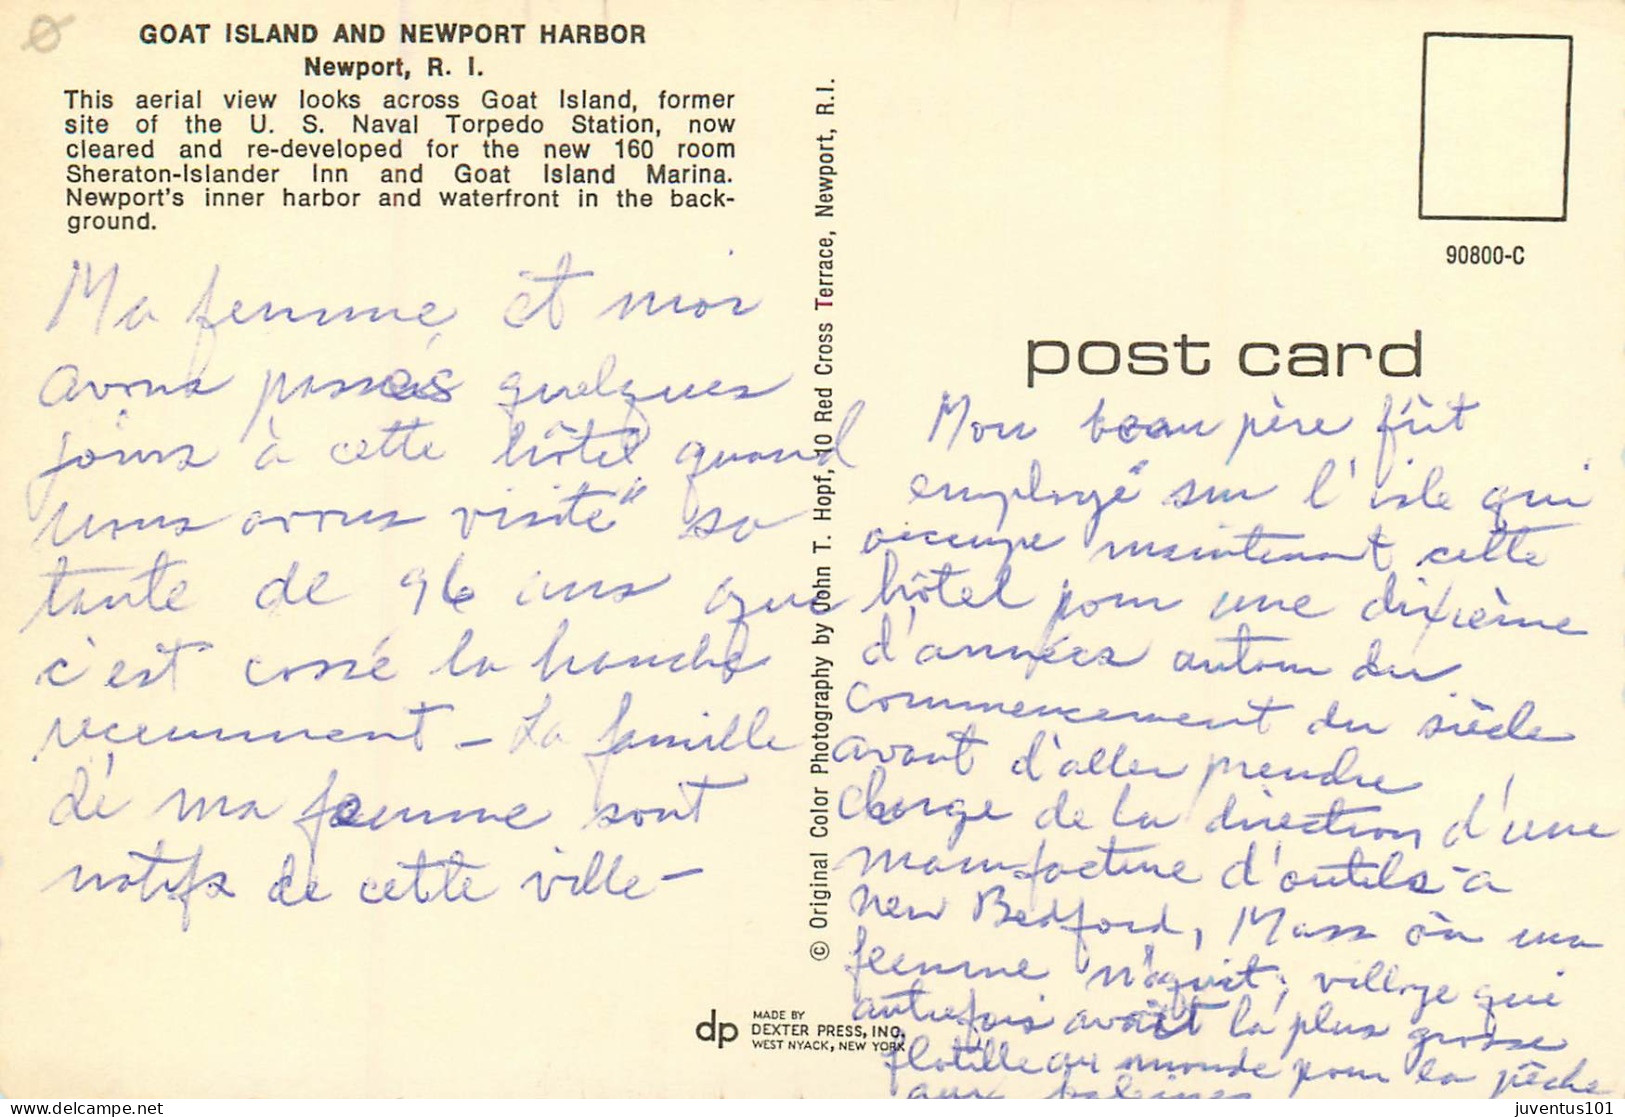 GOAT ISLAND AND NEWPORT HARBOR
Newport, R. I.
This aerial view looks across Goat Island, former
site of the U. S. Naval Torpedo Station, now
cleared and re-developed for the new 160 room
Sheraton-Islander Inn and Goat Island Marina.
Newport's inner harbor and waterfront in the back-
ground.
Ma femme et moi
avons passés quelques
jours à cette hôtel quand
nous avons visité sa
tante de 96 ans que
c'est cassé la hanche
recemment - La famille
dé ma femme sont
natifs de cette ville -
© Original Color Photography by John T. Hopf, 10 Red Cross Terrace, Newport, R.I.
dp
MADE BY
DEXTER PRESS, INC.
WEST NYACK, NEW YORK
90800-C
post card
Mon beau père fût
employé sur l'isle qui
occupe maintenant cette
hôtel pour une dixième
d'années autour du
commencement du siècle
avant d'aller prendre
charge de la direction d'une
manufacture d'outils a
New Bedford, Mass où ma
femme náquit; village qui
autrefois avait la plus grosse
flotille au monde pour la pêche
aux baleines
juventus101